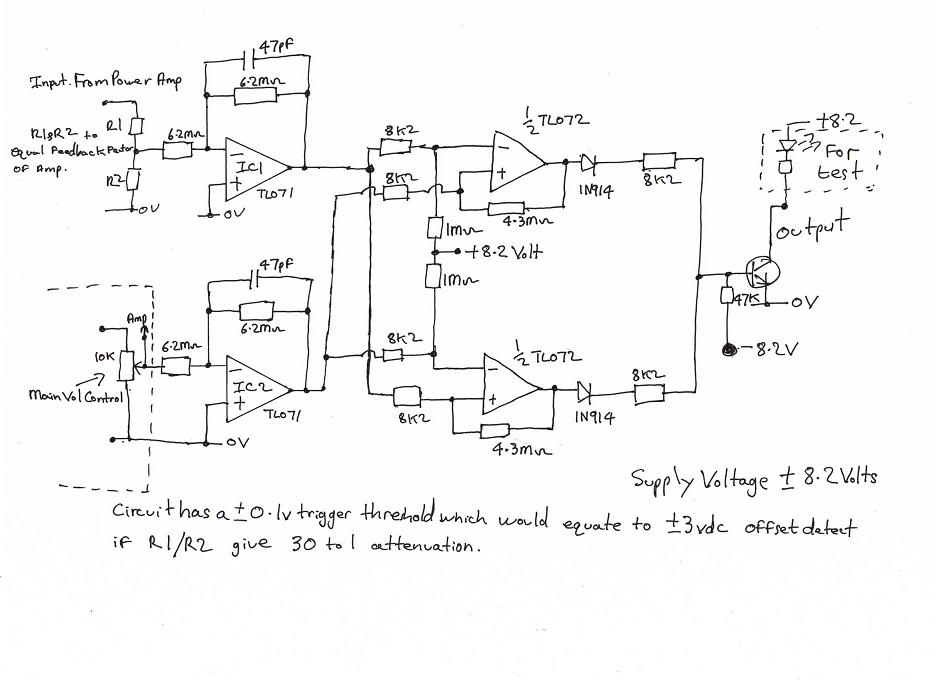 47pf
6.2MΩ
Input. From Power Amp
R1
R1&R2 to
equal Feedback Factor
OF Amp.
6.2MΩ
R2
0V
IC1
TL071
0V
8K2
8K2
½ TL072
1N914
8K2
4.3MΩ
1MΩ
+8.2 Volt
1MΩ
±8.2
For
test
output
47K
0V
-8.2V
47pF
6.2MΩ
Amp
10K
6.2MΩ
Main Vol Control
IC2
TL071
0V
8K2
½ TL072
8K2
1N914
8K2
4.3MΩ
Supply Voltage ± 8.2 Volts
Circuit has a ±0.1v trigger threshold which would equate to ±3vdc offset detect
if R1/R2 give 30 to 1 attenuation.